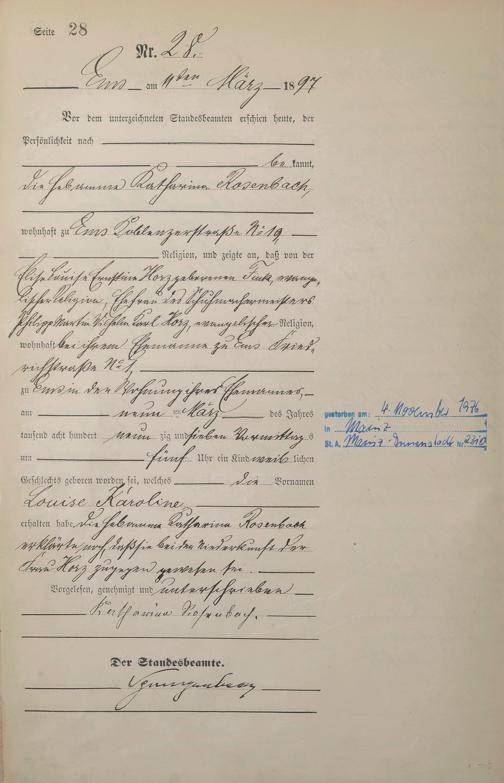 Seite 28
Nr. 28.
Ems am 11ten März 1897
Vor dem unterzeichneten Standesbeamten erschien heute, der
Persönlichkeit nach
bekannt,
die Hebamme Katharina Rosenbach,
wohnhaft zu Ems Koblenzerstraße No 19,
Religion, und zeigte an, daß von der
Elise Louise Ernstine Horz geborenen Funk, evange-
lischer Religion, Ehefrau des Schuhmachermeisters
Philipp Martin Wilhelm Karl Horz, evangelischer Religion,
wohnhaft bei ihrem Ehemanne zu Ems Fried-
richstraße No 1,
zu Ems in der Wohnung ihres Ehemannes,
am neun ten März des Jahres
tausend acht hundert neun zig und sieben Vormittags
um fünf Uhr ein Kind weiblichen
Geschlechts geboren worden sei, welches die Vornamen
Louise Karoline
erhalten habe. Die Hebamme Katharina Rosenbach
erklärte noch, daß sie bei der Niederkunft der
Frau Horz zugegen gewesen sei.
Vorgelesen, genehmigt und unterschrieben
Katharina Rosenbach.
Der Standesbeamte.
gestorben am: 4. November 1976
in Mainz
St. A. Mainz Nr.